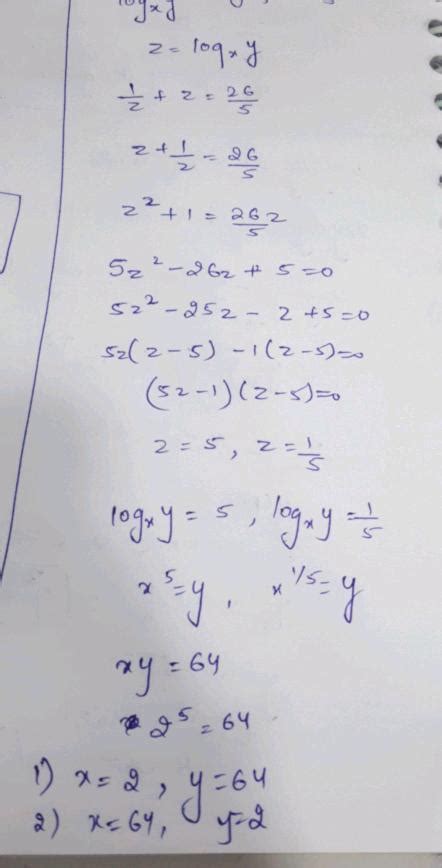 z = log_x y
1/z + z = 26/5
z + 1/z = 26/5
z² + 1 = 26z/5
5z² - 26z + 5 = 0
5z² - 25z - z + 5 = 0
5z(z - 5) - 1(z - 5) = 0
(5z - 1)(z - 5) = 0
z = 5, z = 1/5
log_x y = 5, log_x y = 1/5
x⁵ = y, x^1/5 = y
xy = 64
2⁵ = 64
1) x = 2, y = 64
2) x = 64, y = 2